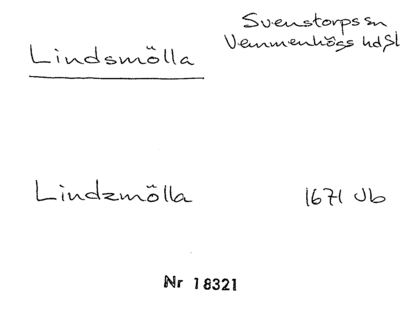 Svenstorps sn
Lindsmölla
Vemmenhögs hd Sk
Lindzmölla 1671 Jb
Nr 18321